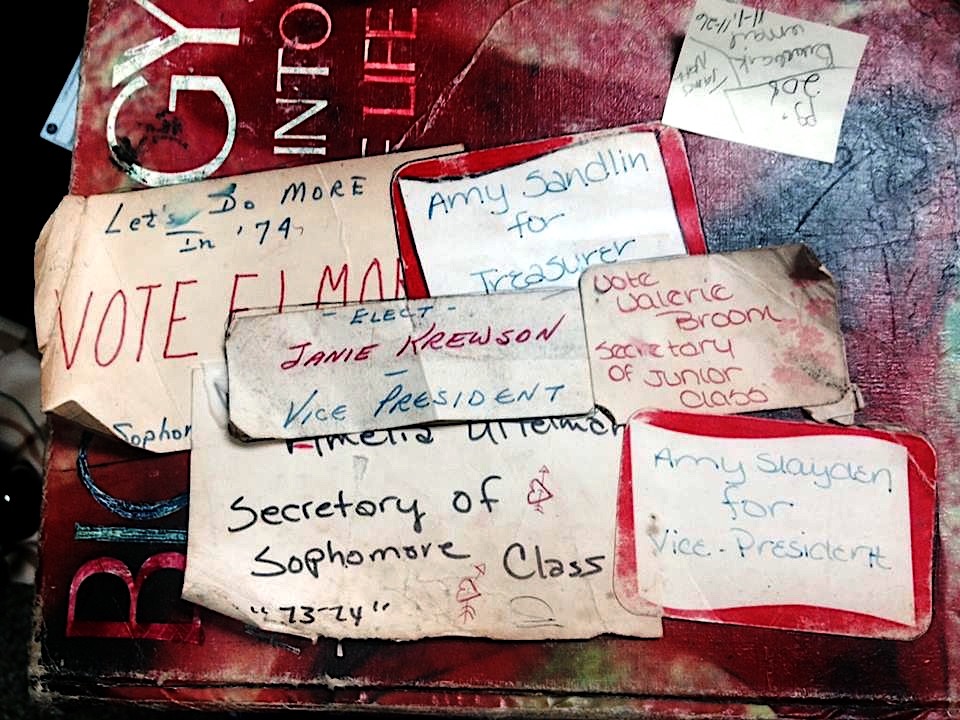 Let's Do MORE
In '74
VOTE ELMO
Sophor
Amy Sandlin
for
Treasurer
- ELECT -
JANIE KREWSON
-
VICE PRESIDENT
Vote
Valerie
Broom
Secretary
OF Junior
Class
Amelia
Secretary of
Sophomore Class
"73-74"
Amy Slayden
for
Vice-President
GY
INTO
LIFE
BIO
pg.
206
email